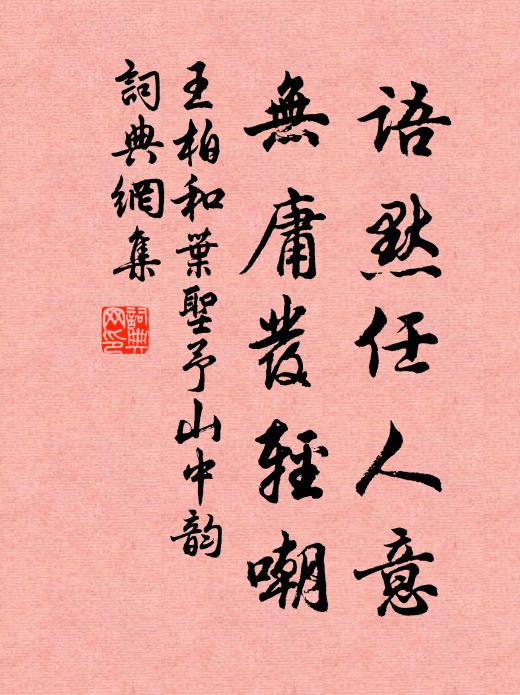 語默任人意
無庸發輕嘲
王柏和葉聖予山中韵
詞典網集
詞典
网印